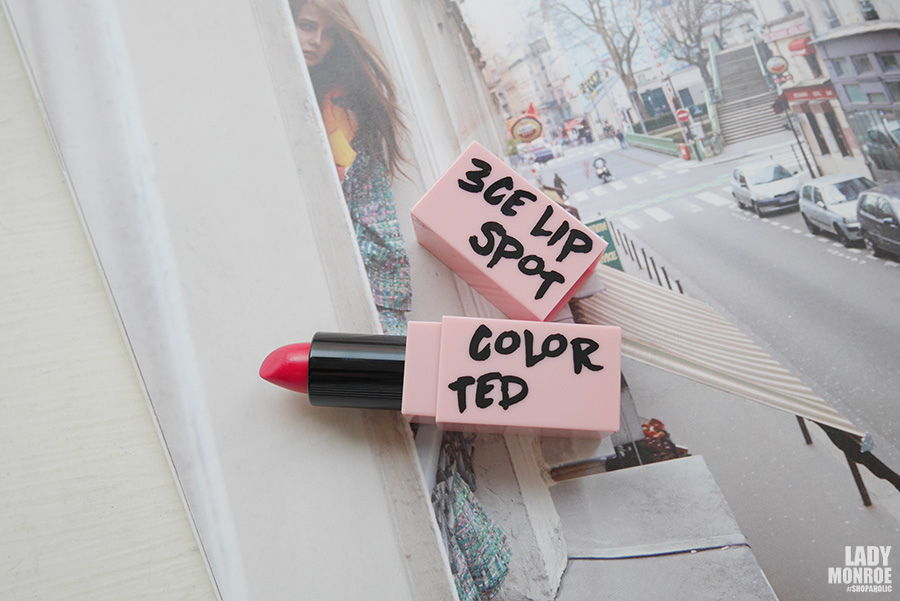 3CE LIP
SPOT
COLOR
TED
LADY
MONROE
#SHOPAHOLIC